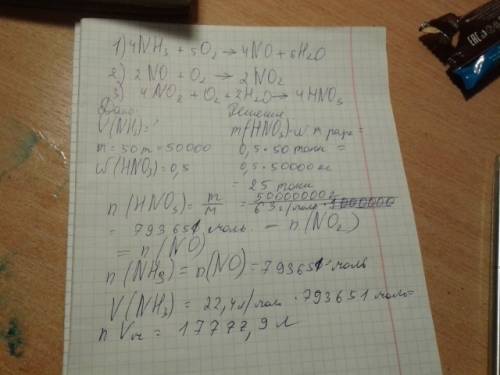 1) 4NH₃ + 5O₂ → 4NO + 6H₂O
2) 2NO + O₂ → 2NO₂
3) 4NO₂ + O₂ + 2H₂O → 4HNO₃
Дано:
V(NH₃)=?
m = 50т = 50000
W(HNO₃) = 0,5
Решение
m(HNO₃) = w·m раст =
0,5 · 50 тонн =
0,5 · 50000 кг
= 25 тонн
n(HNO₃) = m/M = 50000000г / 63 г/моль · 1000000
= 793651 моль = n(NO₂)
= n(NO)
n(NH₃) = n(NO) = 793651 моль
V(NH₃) = 22,4 л/моль · 793651 моль =
n Vm = 17777,9 л
EAC